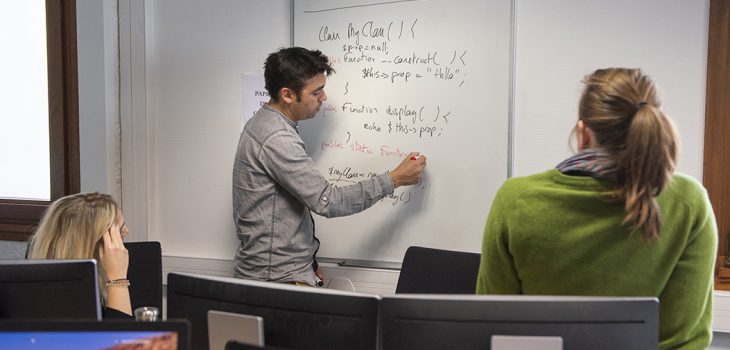 Class MyClass() {
$prop=null;
function __construct() {
$this->prop = "Hello";
}
public function display() {
echo $this->prop;
}
public static function
$myClass = new